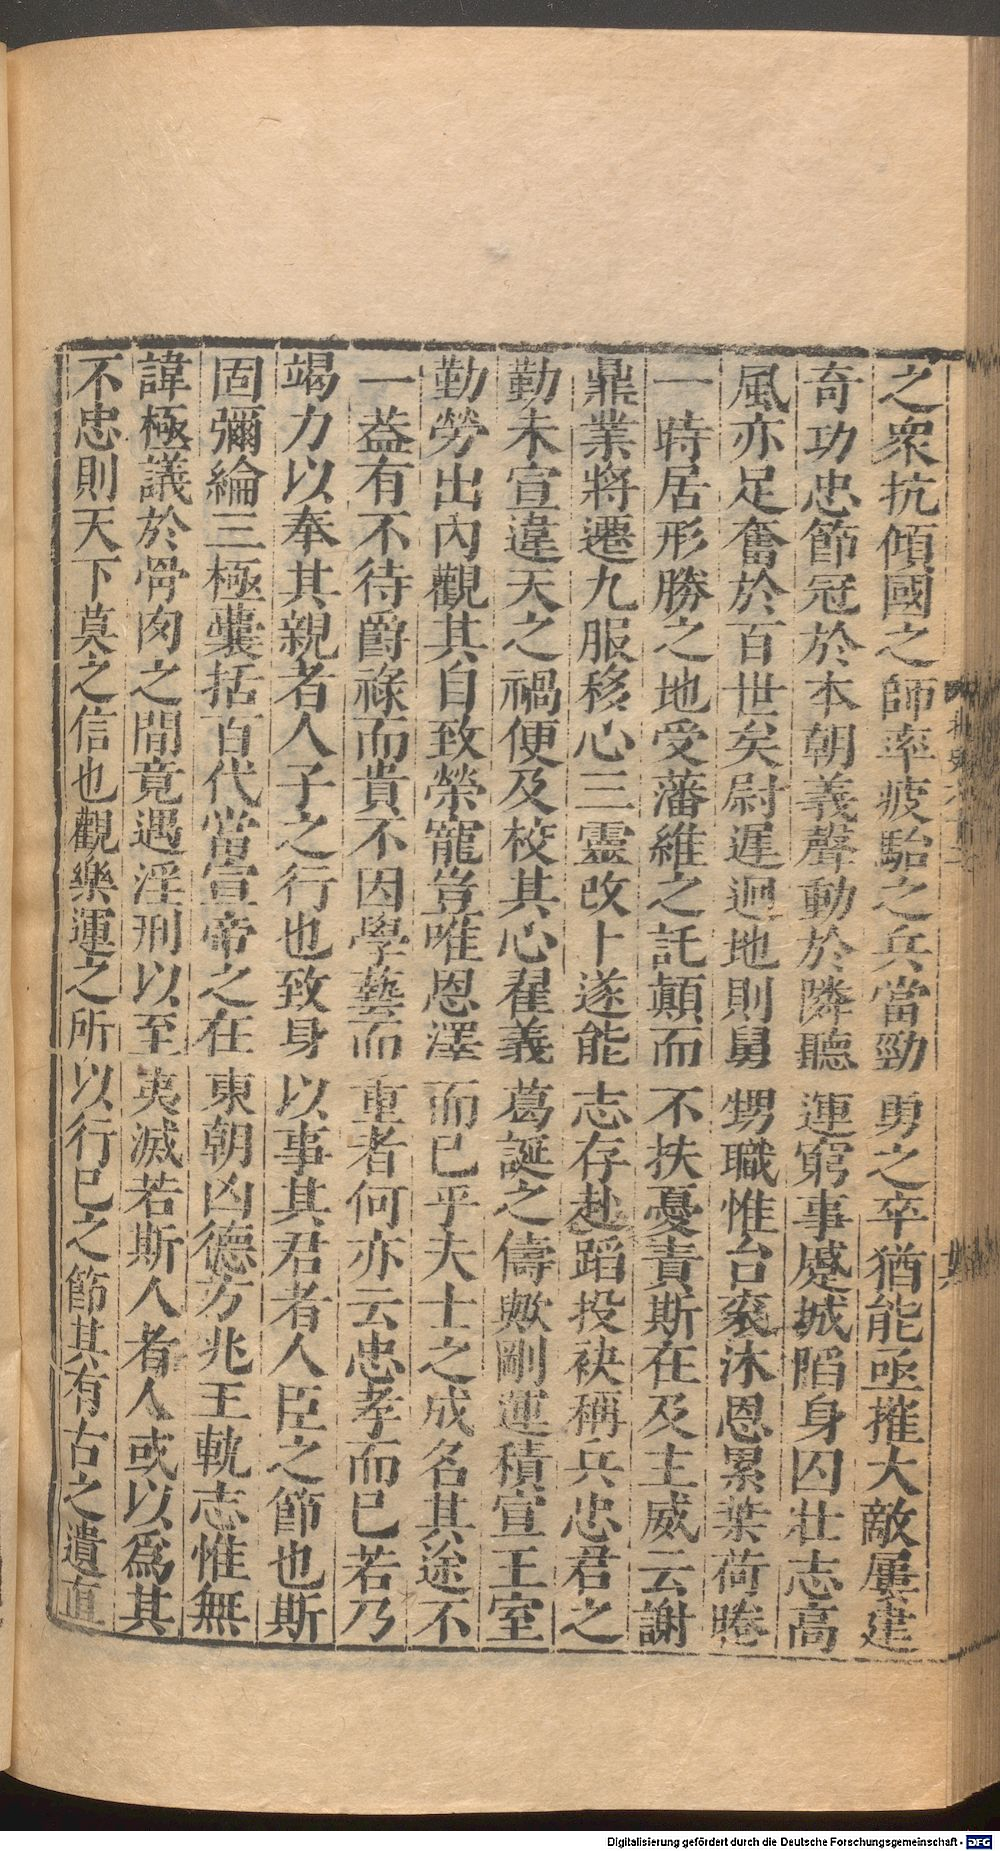 之衆抗傾國之師率疲駘之兵當勁勇之卒猶能亟摧大敵屢建
奇功忠節冠於本朝義聲動於隣聽運窮事蹙城陷身囚壯志高
風亦足奮於百世矣尉遲迥地則舅甥職惟台衮沐恩累葉荷睠
一時居形勝之地受藩維之託顛而不扶憂責斯在及主威云謝
鼎業將遷九服移心三靈改卜遂能志存赴蹈投袂稱兵忠君之
勤未宣違天之禍便及校其心翟義葛誕之儔歟剛運積宣王室
勤勞出內觀其自致榮寵豈唯恩澤而已乎夫士之成名其途不
一葢有不待爵祿而貴不因學藝而重者何亦云忠孝而已若乃
竭力以奉其親者人子之行也致身以事其君者人臣之節也斯
固彌綸三極囊括百代當宣帝之在東朝凶德方兆王軌志惟無
諱極議於骨肉之間竟遇淫刑以至夷滅若斯人者人或以爲其
不忠則天下莫之信也觀樂運之所以行已之節其有古之遺直
Digitalisierung gefördert durch die Deutsche Forschungsgemeinschaft - DFG